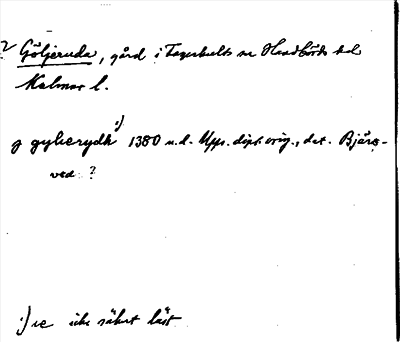 ? Göljeruda, gård i Tagerhults sn Handbörds hd
Kalmar l.
j gylyerydh ·/) 1380 u.d. Upps. dipl. orig., dat. Bjärs-
ved ?
·/) ie icke säkert läst